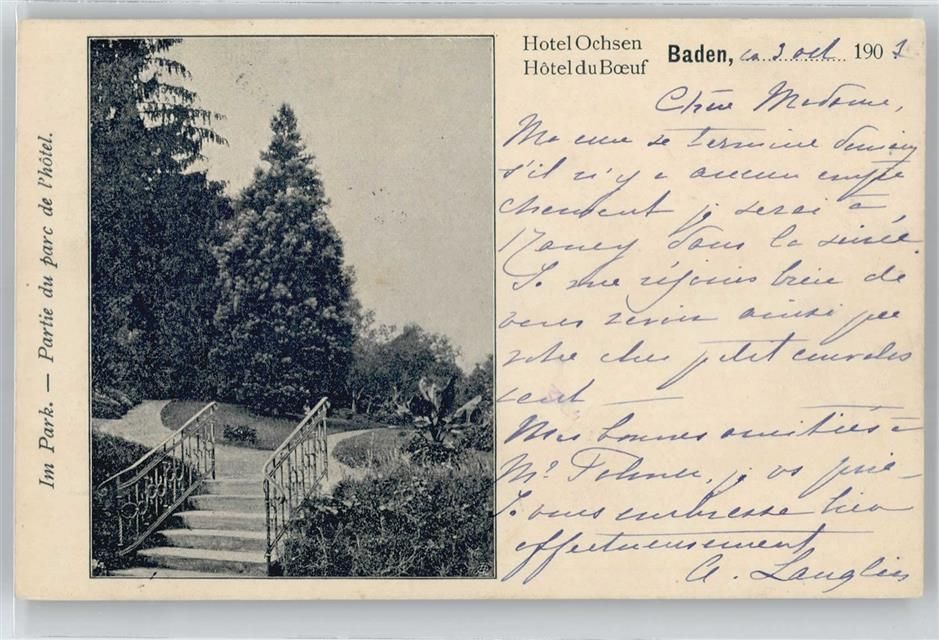 Im Park. — Partie du parc de l'hôtel.
Hotel Ochsen
Hôtel du Bœuf
Baden, ce 3 oct 1903
Chère Madame,
Ma cure se termine demain
s'il n'y a aucun empê
chement je serai à
Nancy dans la soirée.
Je me réjouis bien de
vous revoir ainsi que
votre cher petit convales
cent —
Mes bonnes amitiés à
Mr je vs prie
Je vous embrasse bien
affectueusement